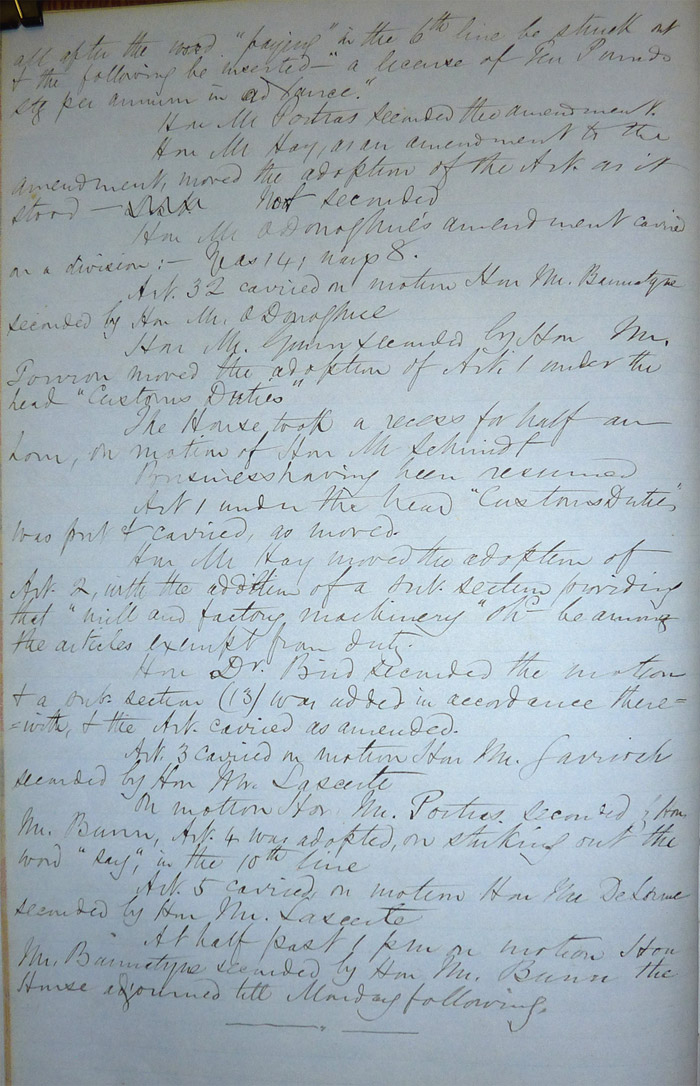 all after the word "paying" in the 6th line be struck out
& the following be inserted — "a license of Ten Pounds
stg per annum in advance."
Hon Mr Poitras seconded the amendment.
Hon Mr Hay, as an amendment to the
amendment, moved the adoption of the Art. as it
stood — Not seconded
Hon Mr O'Donoghue's amendment carried
on a division: — Yeas 14; nays 8.
Art. 32 carried on motion Hon Mr. Bannatyne
seconded by Hon Mr. O'Donoghue
Hon Mr. Gunn seconded by Hon Mr.
Touron moved the adoption of Art. 1 under the
head "Customs Duties"
The House took a recess for half an
hour, on motion of Hon Mr Schmidt
Business having been resumed
Art 1 under the head "Customs Duties"
was put & carried, as moved.
Hon Mr Hay moved the adoption of
Art. 2, with the addition of a sub. section providing
that "mill and factory machinery" shd be among
the articles exempt from duty.
Hon Dr. Bird seconded the motion
& a sub. section (13) was added in accordance there=
=with, & the Art. carried as amended.
Art. 3 carried on motion Hon Mr. Garrioch
seconded by Hon Mr. Lascerte
On motion Hon Mr. Poitras seconded by Hon
Mr. Bunn, Art. 4 was adopted, on striking out the
word "say", in the 10th line
Art. 5 carried on motion Hon Mr DeLorme
seconded by Hon Mr. Lascerte
At half past 1 pm on motion Hon
Mr. Bannatyne seconded by Hon Mr. Bunn the
House adjourned till Monday following.